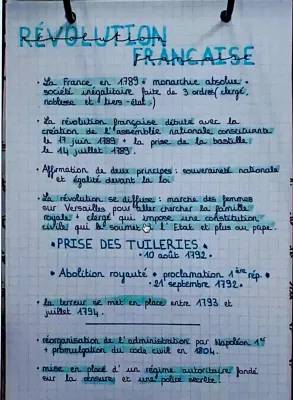 RÉVOLUTION
Révolution
FRANÇAISE
Française
• La France, en 1789 = monarchie absolue +
société inégalitaire faite de 3 ordres (clergé,
noblesse et tiers-état.)
• La révolution française débute avec la
création de l'assemblée nationale constituante
le 17 juin 1789 + la prise de la bastille
le 14 juillet 1789.
• Affirmation de deux principes : souveraineté nationale
et égalité devant la loi
• La révolution se diffuse : marche des femmes
sur Versailles pour aller chercher la famille
royale + clergé qui impose une constitution
civile qui le soumet à l'Etat et plus au pape.
• PRISE DES TUILERIES •
• 10 août 1792 •
• Abolition royauté + proclamation 1ère rép. •
• 21 septembre 1792 •
• la terreur se met en place entre 1793 et
juillet 1794.
• réorganisation de l'administration par Napoléon 1er
+ promulgation du code civil en 1804.
• mise en place d'un régime autoritaire fondé
sur la censure et une police secrète.